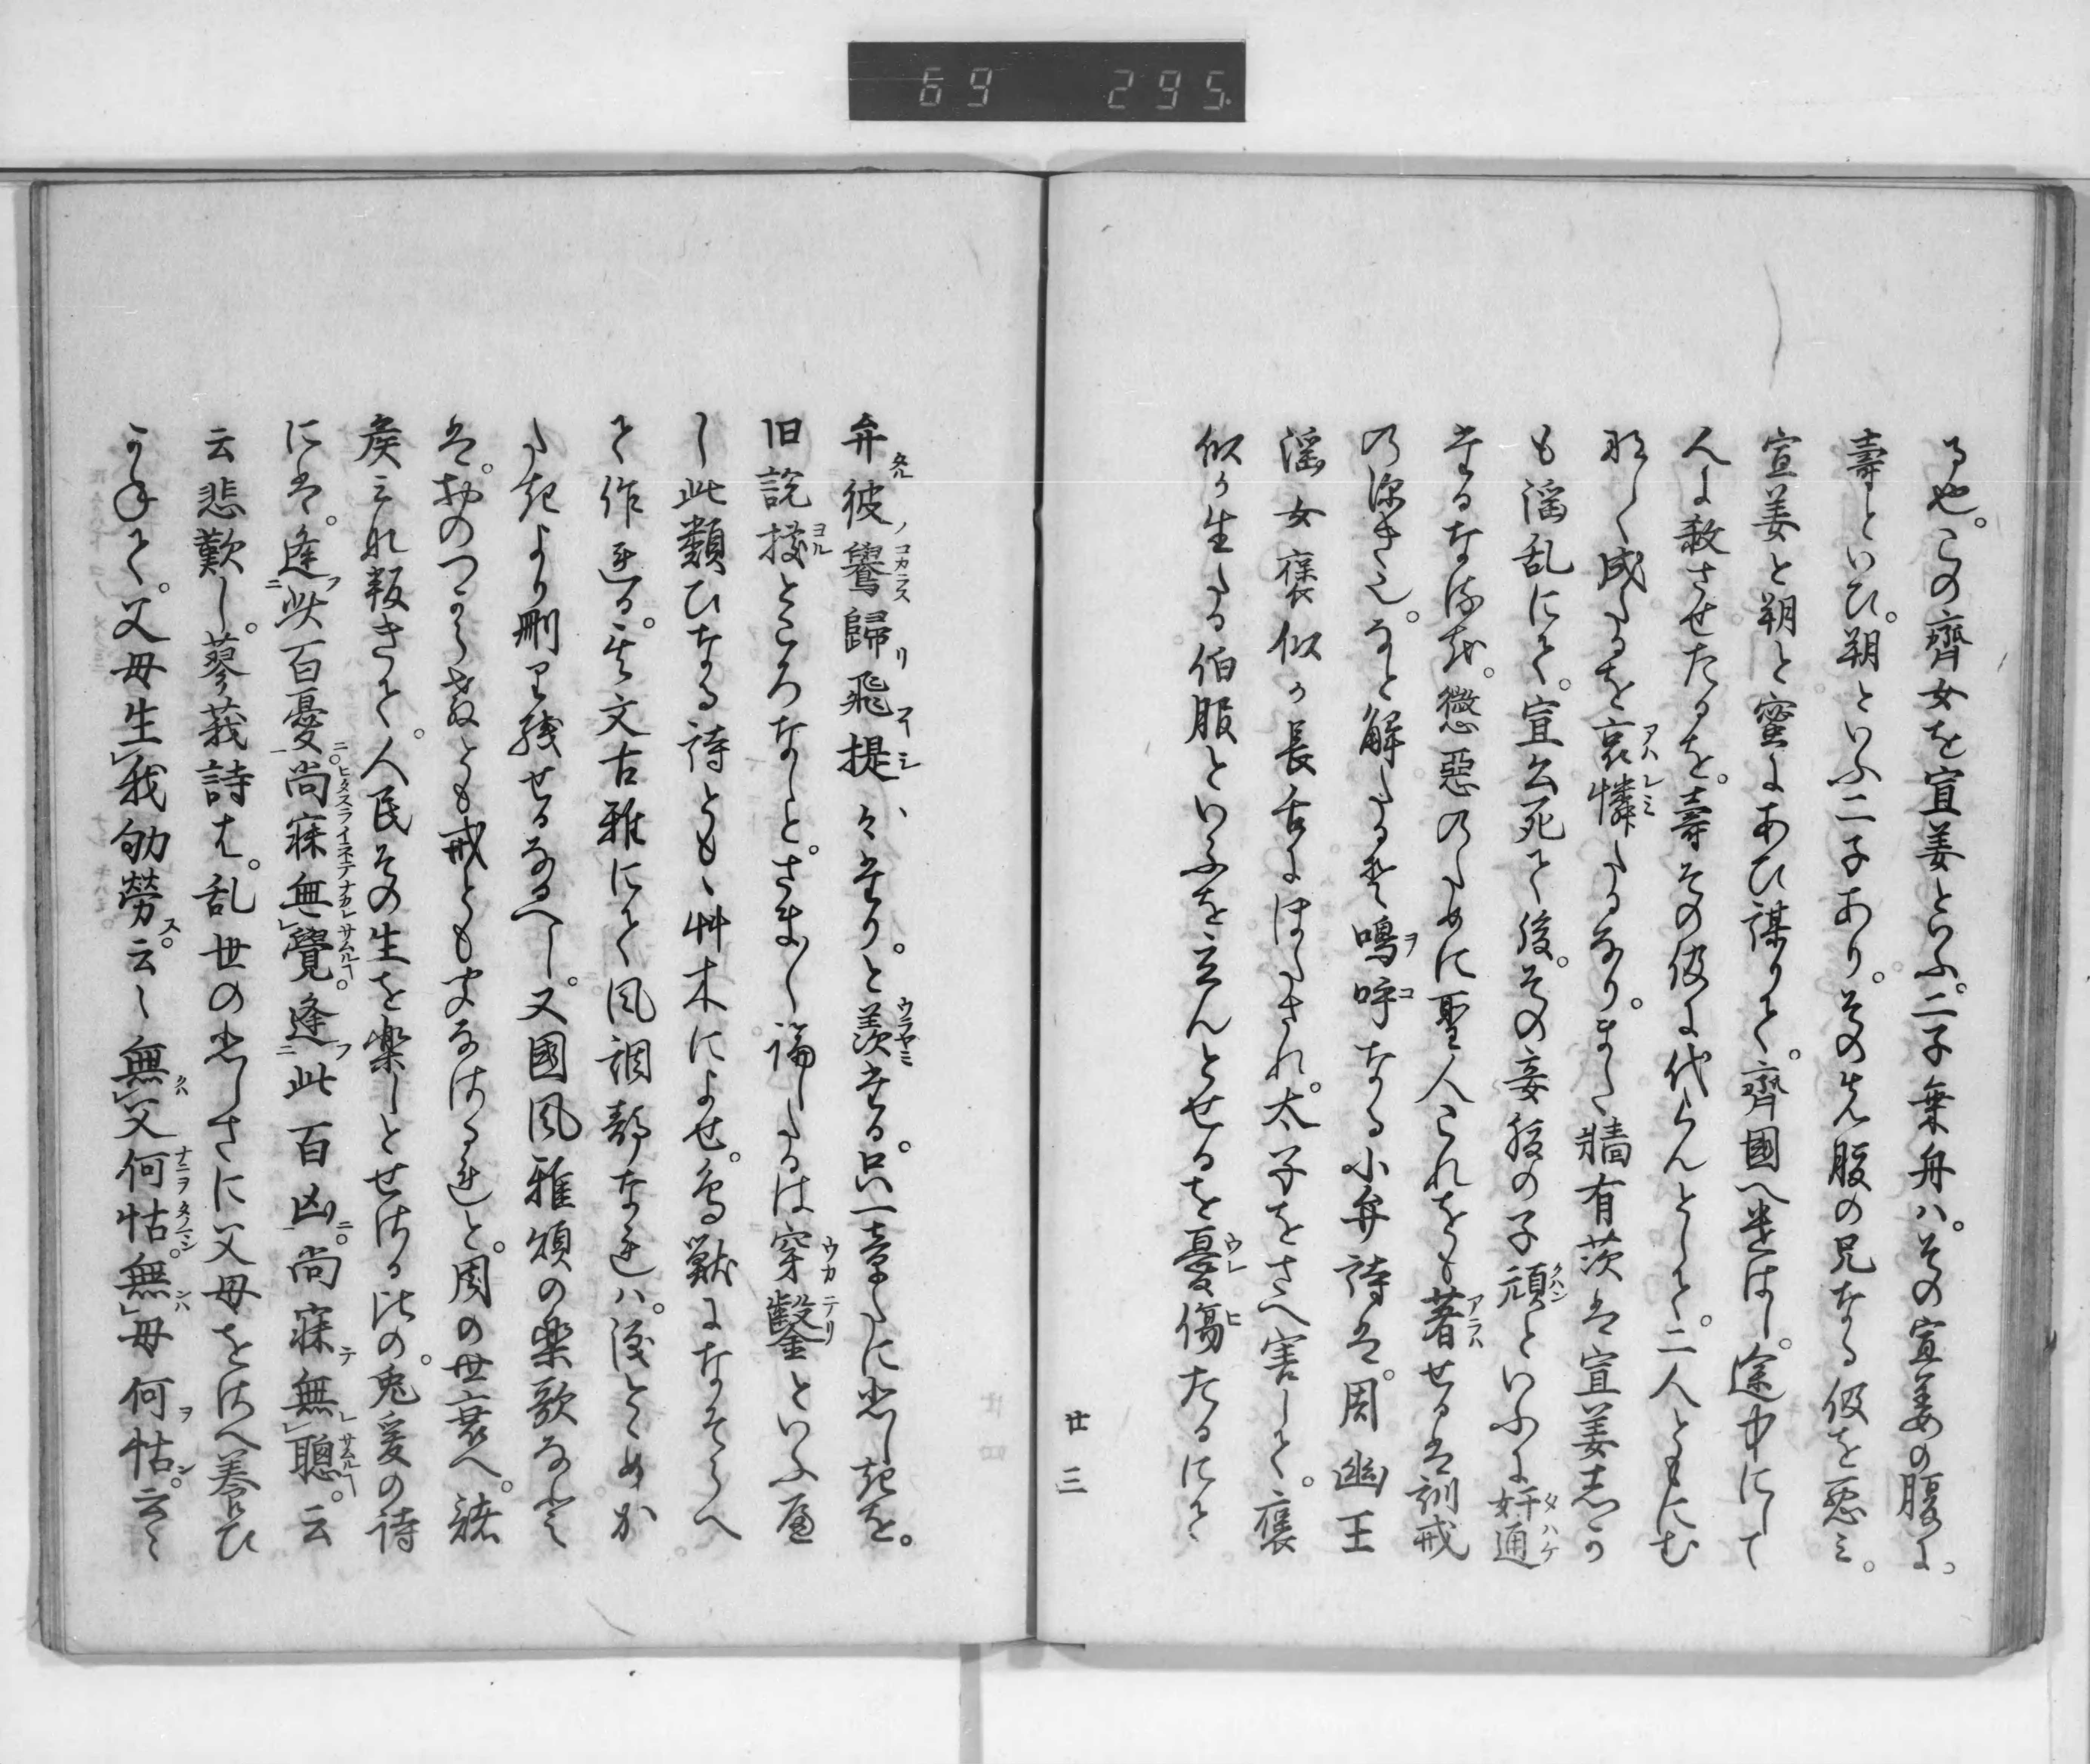 69 295
る也。この齊女を宣姜といふ。二子乗舟ハ。その宣姜の腹に。
壽といひ。朔といふ二子あり。その先腹の兄なる伋を悪ミ。
宣姜と朔と蜜にあひ謀りて。齊國へ遣はし。途中にして
人に殺させたるを。壽その伋に代らんとして。二人ともにむ
なしく成たるを哀憐たるなり。また牆有茨は宣姜志か
も滛乱にて。宣公死て後。その妾腹の子頑といふに奸通
せるなれば。懲惡のために聖人これをも著せるは訓戒
の深き也。なと解たるぞ嗚呼なる小弁詩は。周幽王
滛女褒似か長舌にほたされ。太子をさへ害して。褒
似か生たる伯服といふを立んとせるを憂傷たるにて
廿三
弁彼鸒歸飛提々せり。と羨せる。只一章たに悲しきを。
旧説據ところなしと。さま〱論したるは穿鑿といふ屋
し此類ひなる詩とも、艸木によせ。鳥獣になそらへ
て作述る。其文古雅にて風調韵なれハ。後とめか
たきより刪り残せるなるへし。又國風雅頌の楽歌なと
は。おのつから教とも戒とも成なはるれと。周の世衰へ。諸
矦これ叛きて。人民その生を楽しとせさる比の。兎爰の詩
にハ。逢此百憂尚寐無覺。逢此百凶尚寐無聰。云
云悲歎し。蓼莪詩は。乱世の悲しさに父母をさへ養ひ
かねて。父母生我劬勞云〻無父何怙。無母何怙。云〻